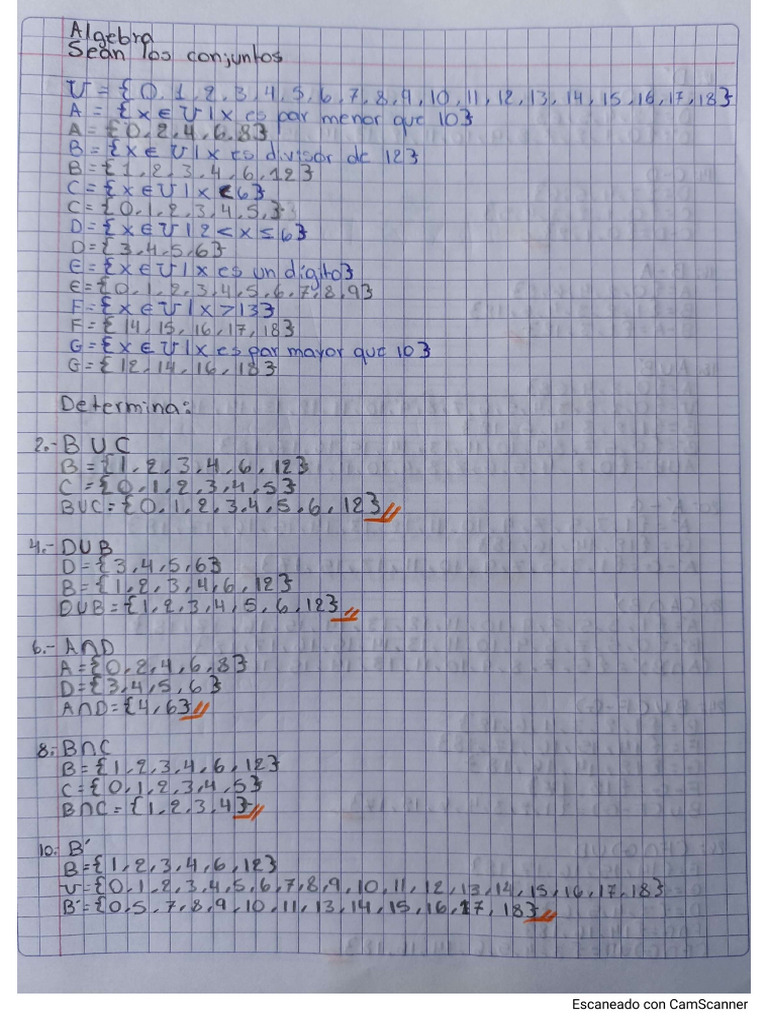 Algebra
Sean los conjuntos
U = {0, 1, 2, 3, 4, 5, 6, 7, 8, 9, 10, 11, 12, 13, 14, 15, 16, 17, 18}
A = {x ∈ U | x es par menor que 10}
A = {0, 2, 4, 6, 8}
B = {x ∈ U | x es divisor de 12}
B = {1, 2, 3, 4, 6, 12}
C = {x ∈ U | x < 6}
C = {0, 1, 2, 3, 4, 5,}
D = {x ∈ U | 2 < x ≤ 6}
D = {3, 4, 5, 6}
E = {x ∈ U | x es un dígito}
E = {0, 1, 2, 3, 4, 5, 6, 7, 8, 9}
F = {x ∈ U | x > 13}
F = {14, 15, 16, 17, 18}
G = {x ∈ U | x es par mayor que 10}
G = {12, 14, 16, 18}
Determina:
2.- B U C
B = {1, 2, 3, 4, 6, 12}
C = {0, 1, 2, 3, 4, 5}
B U C = {0, 1, 2, 3, 4, 5, 6, 12}
4.- D U B
D = {3, 4, 5, 6}
B = {1, 2, 3, 4, 6, 12}
D U B = {1, 2, 3, 4, 5, 6, 12}
6.- A ∩ D
A = {0, 2, 4, 6, 8}
D = {3, 4, 5, 6}
A ∩ D = {4, 6}
8.- B ∩ C
B = {1, 2, 3, 4, 6, 12}
C = {0, 1, 2, 3, 4, 5}
B ∩ C = {1, 2, 3, 4}
10.- B'
B = {1, 2, 3, 4, 6, 12}
U = {0, 1, 2, 3, 4, 5, 6, 7, 8, 9, 10, 11, 12, 13, 14, 15, 16, 17, 18}
B' = {0, 5, 7, 8, 9, 10, 11, 13, 14, 15, 16, 17, 18}
Escaneado con CamScanner